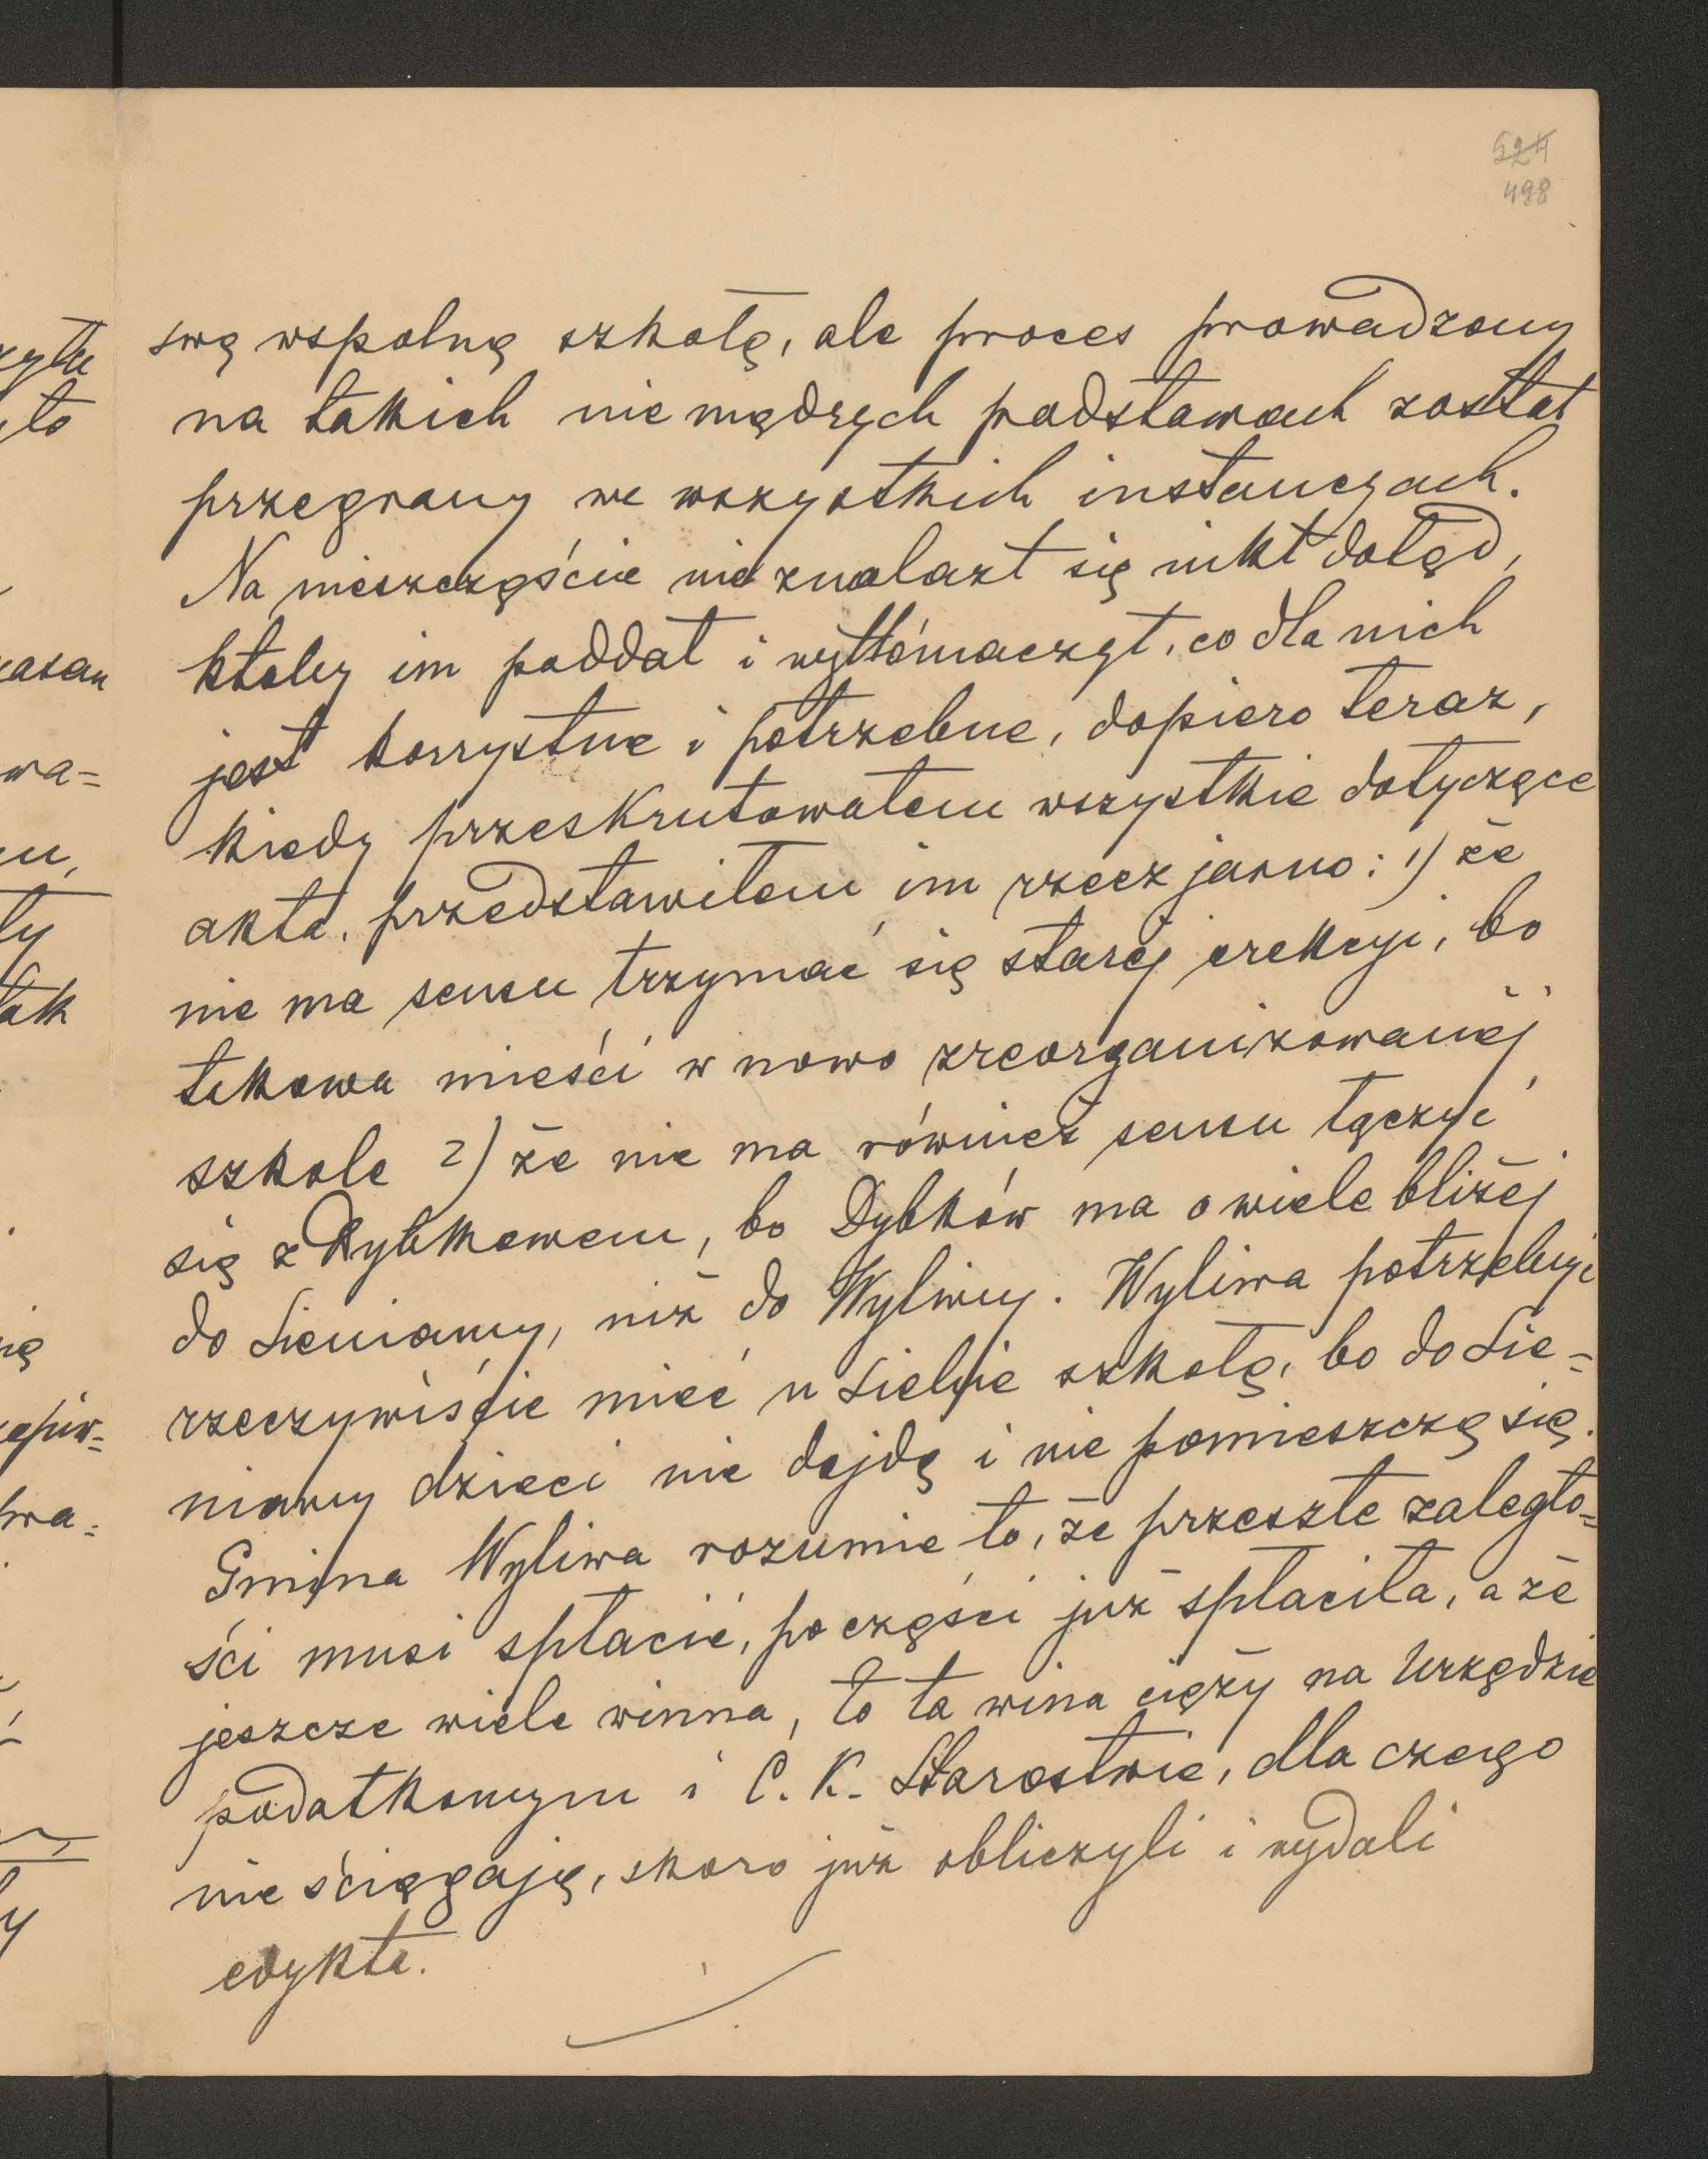 524
498
swą wspólną szkołę, ale proces prowadzony
na takich niemądrych podstawach został
przegrany we wszystkich instancyach.
Na nieszczęście nie znalazł się nikt dotąd,
ktoby im poddał i wytłómaczył, co dla nich
jest korrystne i potrzebne, dopiero teraz,
kiedy przeskrutowałem wszystkie dotyczące
akta, przedstawiłem im rzecz jasno: 1) że
nie ma sensu trzymać się starej erekcyi, bo
takowa mieści w nowo zreorganizowanej
szkole 2) że nie ma również sensu łączyć
się z Dybkowem, bo Dybków ma o wiele bliżéj
do Sieniawy, niż do Wylewy. Wyliwa potrzebuje
rzeczywiście mieć u siebie szkołę, bo do Sie-
niawy dzieci nie dojdą i nie pomieszczą się.
Gmina Wyliwa rozumie to, że przeszłe zaległo-
ści musi spłacić, po części już spłaciła, a że
jeszcze wiele winna, to ta wina cięży na Urzędzie
podatkowym i C. K. Starostwie, dla czego
nie ściągają, skoro już obliczyli i wydali
edykta.
zytu
to
wa=
ty
tak
wa=